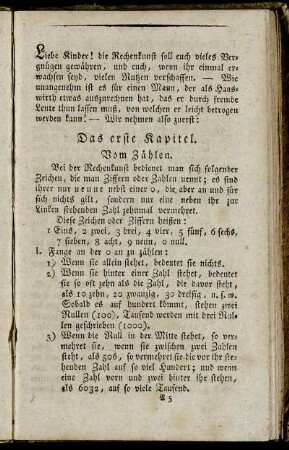 Liebe Kinder! die Rechenkunst soll euch vieles Ver-
gnügen gewähren, und euch, wenn ihr einmal er-
wachsen seyd, vielen Nutzen verschaffen. — Wie
unangenehm ist es für einen Mann, der als Haus-
wirth etwas auszurechnen hat, das er durch fremde
Leute thun lassen muß, von welchen er leicht betrogen
werden kann! — Wir nehmen also zuerst:
Das erste Kapitel.
Vom Zählen.
Bei der Rechenkunst bedienet man sich folgender
Zeichen, die man Ziffern oder Zahlen nennt; es sind
ihrer nur neune nebst einer 0, die aber an und für
sich nichts gilt, sondern nur eine neben ihr zur
Linken stehenden Zahl zehnmal vermehret.
Diese Zeichen oder Ziffern heißen:
1 Eins, 2 zwei, 3 drei, 4 vier, 5 fünf, 6 sechs,
7 sieben, 8 acht, 9 neun, 0 null.
I. Fange an der 0 an zu zählen:
1) Wenn sie allein stehet, bedeutet sie nichts.
2) Wenn sie hinter einer Zahl stehet, bedeutet
sie so oft zehn als die Zahl, die davor steht,
als 10 zehn, 20 zwanzig, 30 dreisig, u. s. w.
Sobald es auf hundert kömmt, stehen zwei
Nullen (100), Tausend werden mit drei Nul-
len geschrieben (1000).
3) Wenn die Null in der Mitte stehet, so ver-
mehret sie, wenn sie zwischen zwei Zahlen
steht, als 506, so vermehret sie die vor ihr ste-
henden Zahl auf so viel Hundert; und wenn
eine Zahl vorn und zwei hinter ihr stehen,
als 6032, auf so viele Tausend.
A 5